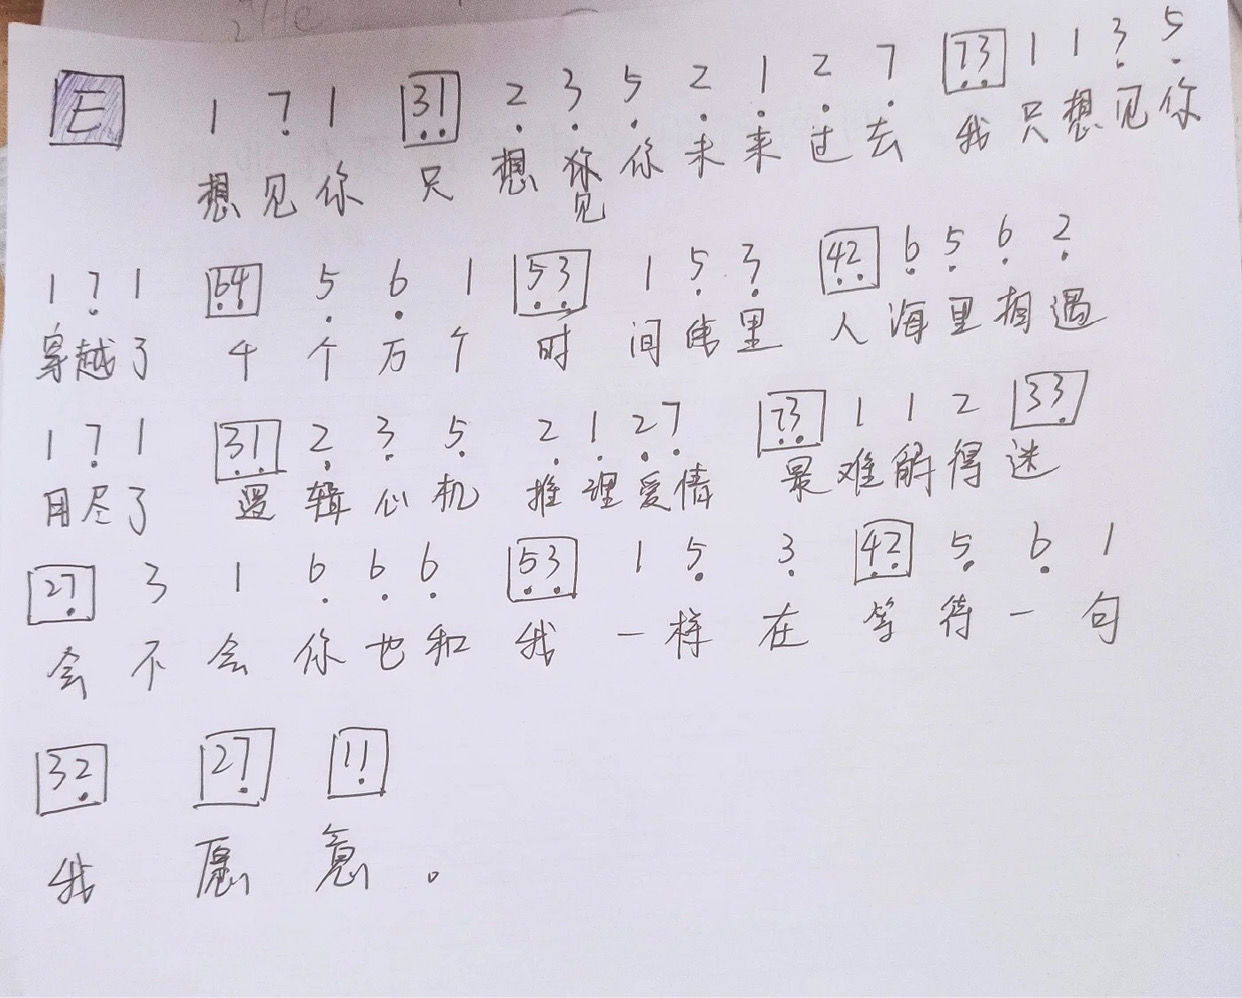 E 1 7 1 31 2 3 5 2 1 2 7 73 1 1 3 5
想见你 只想你未来过去 我只想见你
见
1 7 1 64 5 6 1 53 1 5 3 42 6 5 6 2
穿越了 千个万个 时间线里 人海里相遇
1 7 1 31 2 3 5 2 1 2 7 73 1 1 2 33
用尽了 逻辑心机 推理爱情 最难解得迷
27 3 1 6 6 6 53 1 5 3 42 5 6 1
会不会你也和我一样在等待一句
32 27 11
我愿意。